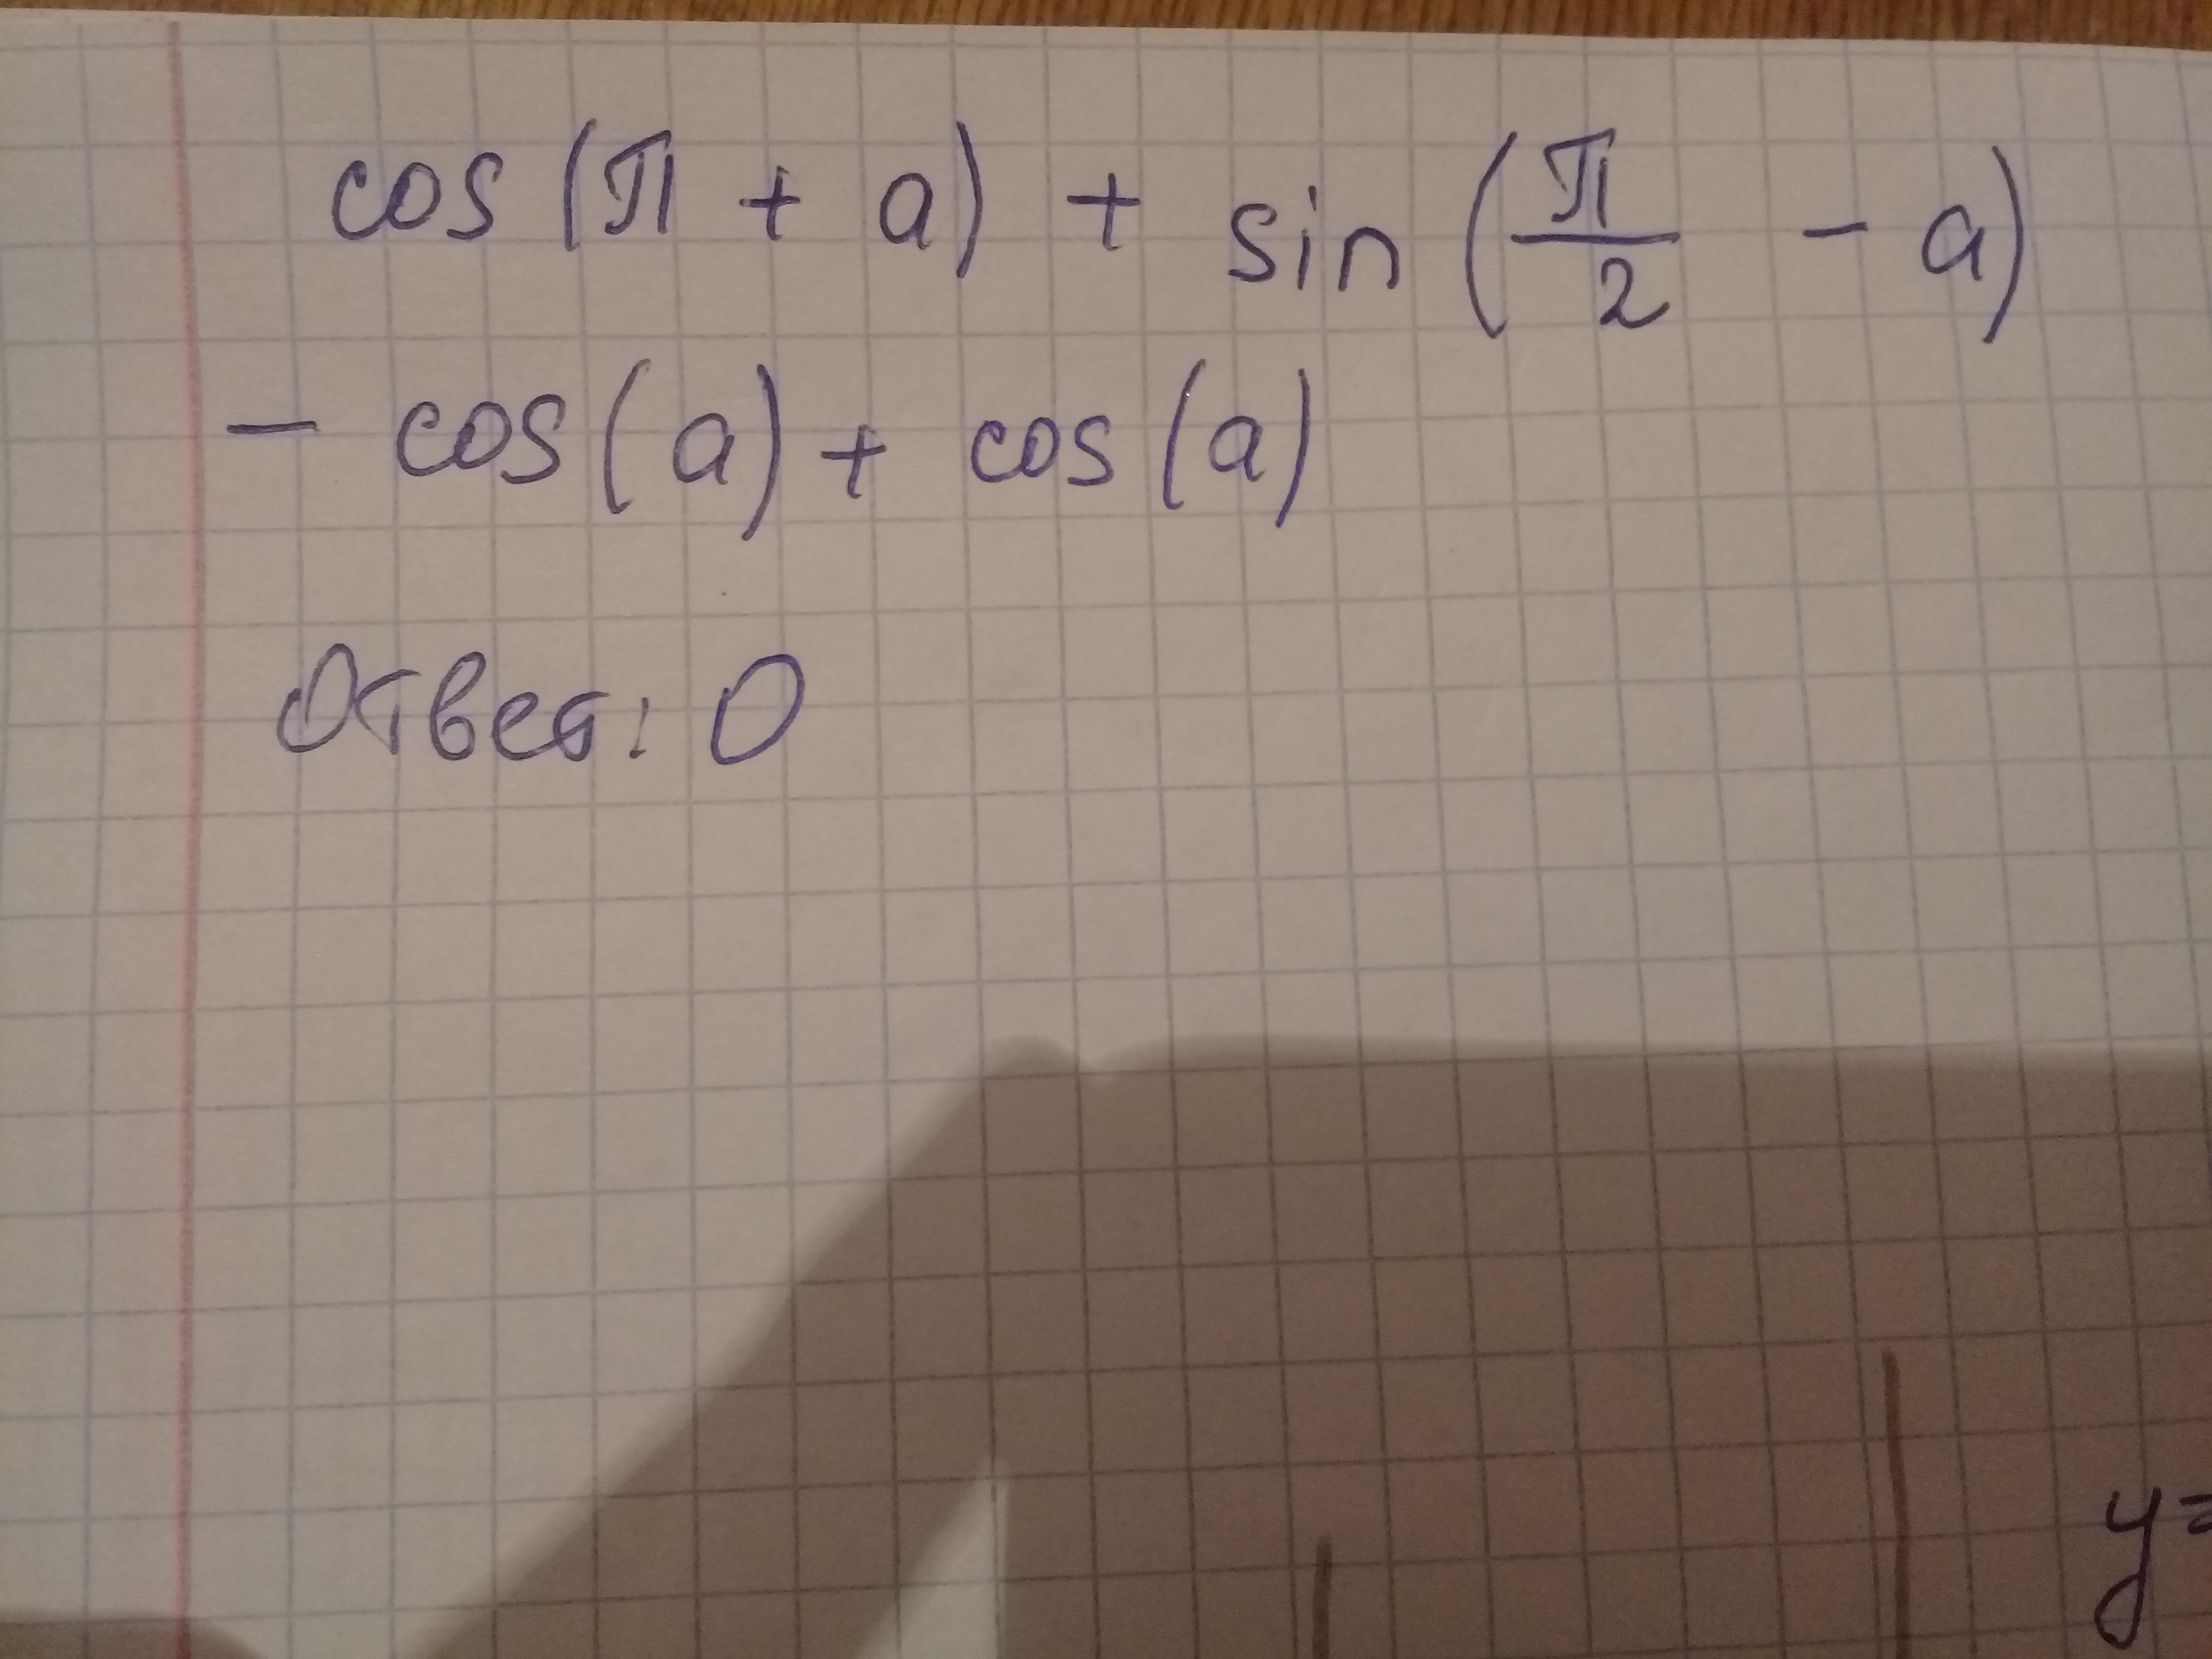 cos(π + a) + sin(π/2 - a)
- cos(a) + cos(a)
Ответ: 0
y=